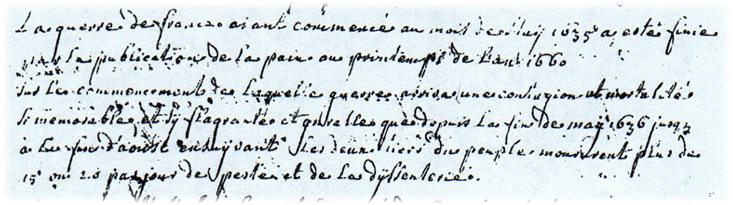 La guerre de france aiant commencé au mois de May 1635 a esté finie
par la publication de la paix au printemps de Lan 1660
Sur Les commencement de Laquelle guerre arriva une contagion et mortalité
Si memorable et sy flagrante et qu'elle que depuis La fin de may 1636 jusq
à La fin d'aoust ensuyvant Les deux tiers du peuple moururent plus de
15 ou 20 par jour de peste et de La dysenterie.